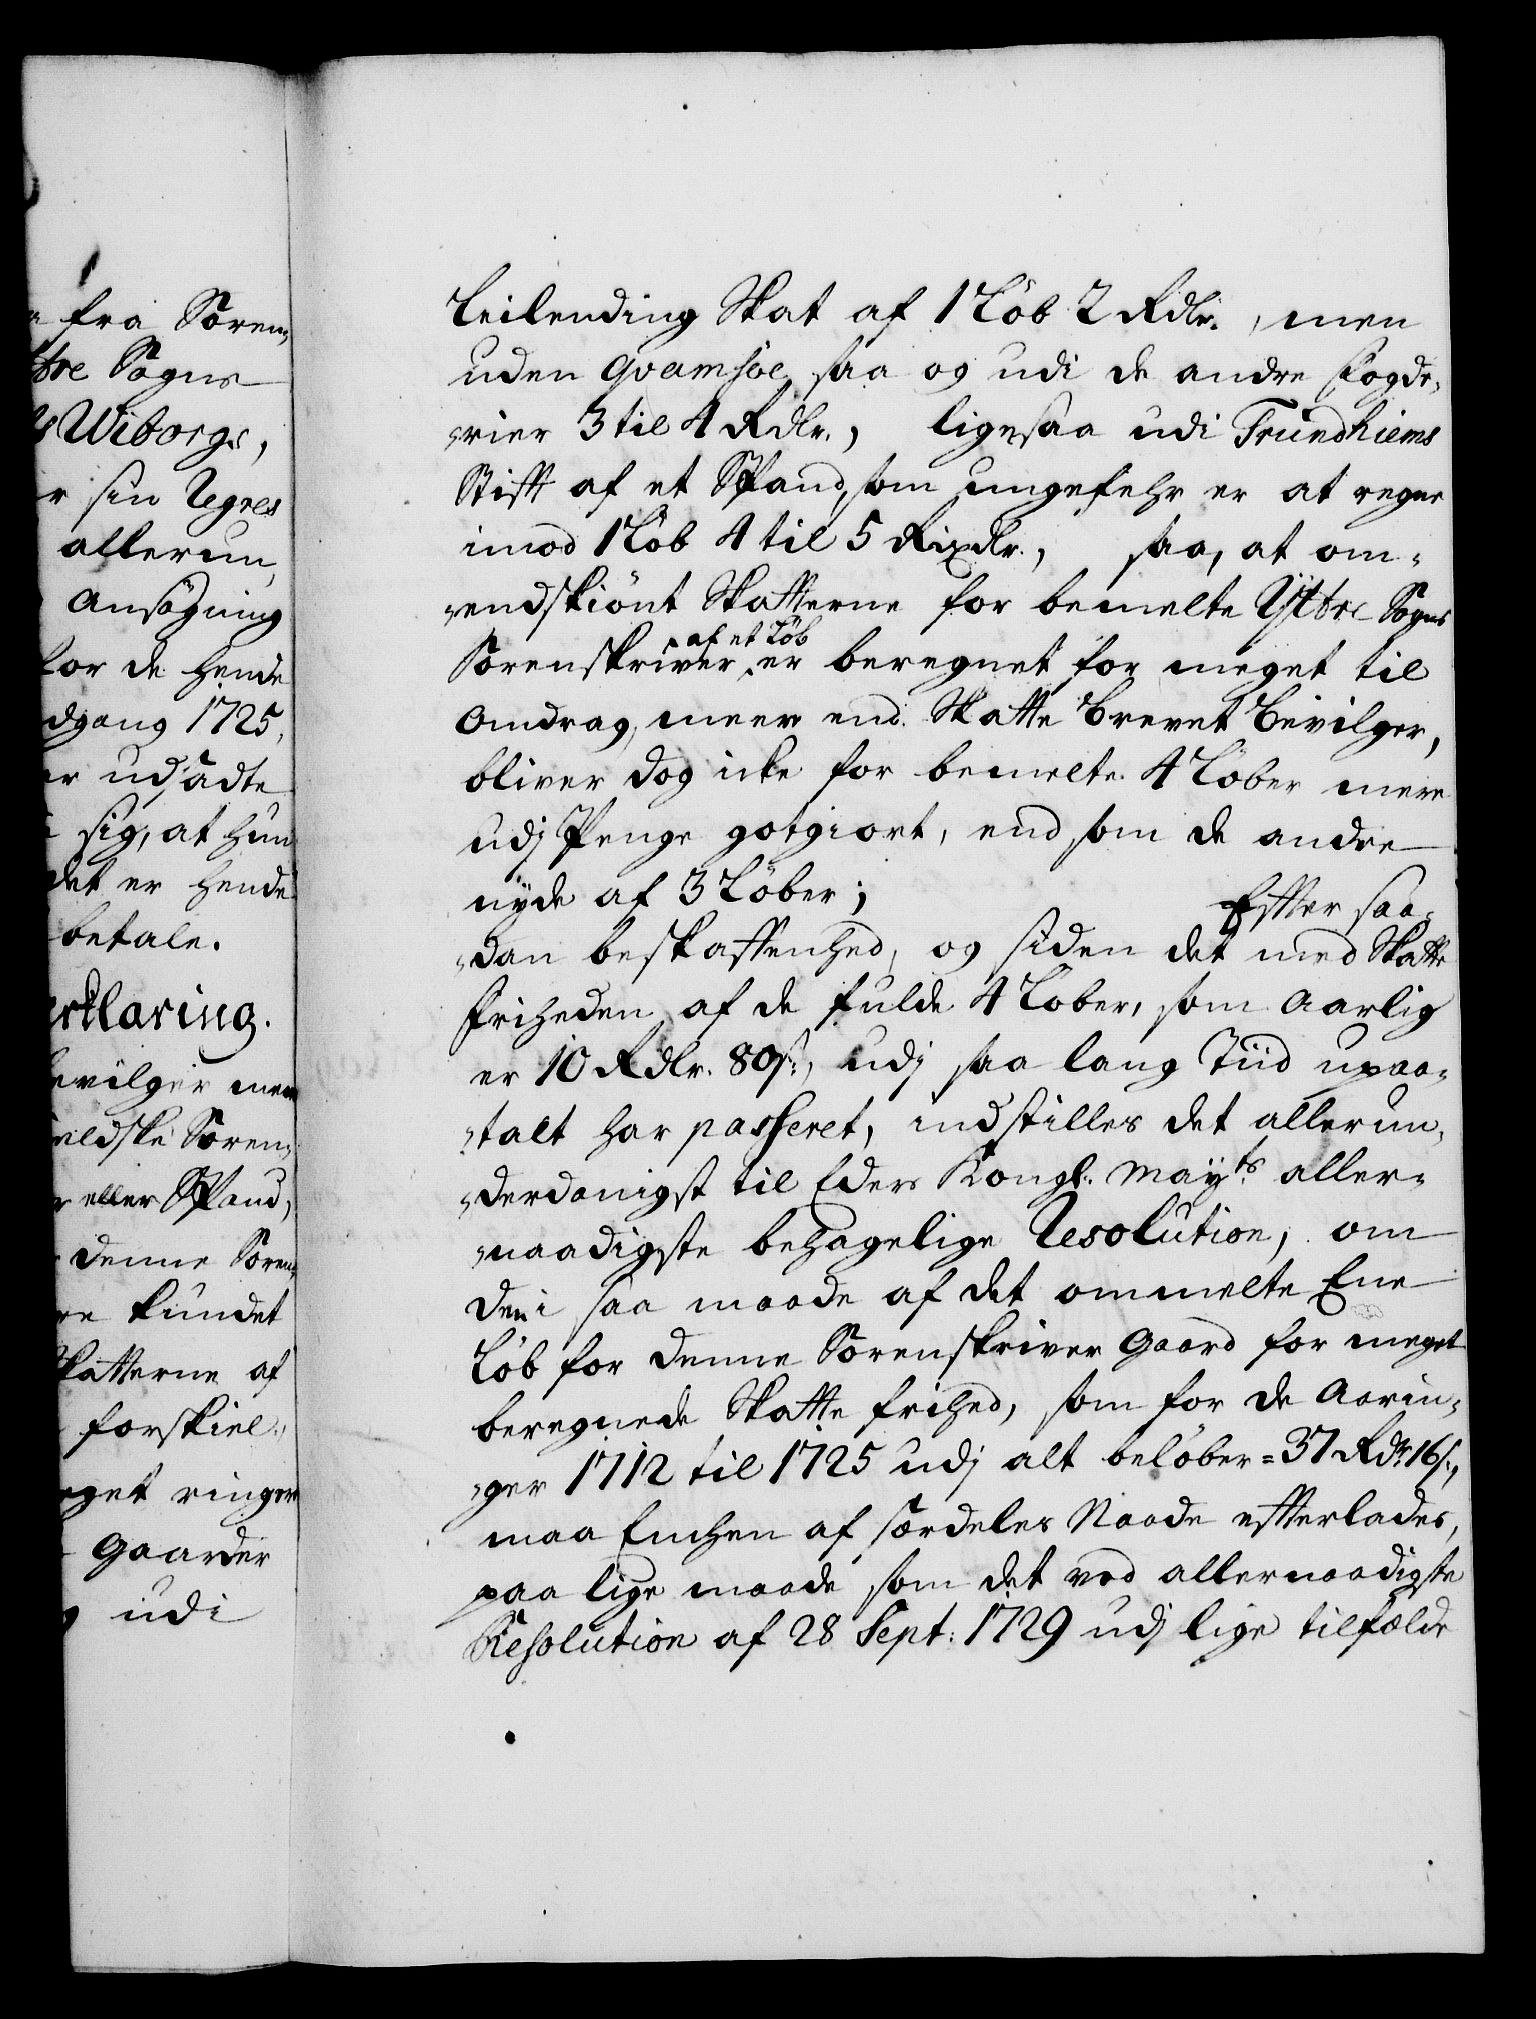 fra Soren,
tre Sogns
Wiborgs,
sin Regres
allerun,
Ansögning
for de hende
dgang 1725,
er udsadte
sig, at hun
det er hende
betale.
erklaring.
bevilger mere
Soren,
eller Spand,
denne Soren,
kundet
Skatterne af
forskiel,
meget ringere
Gaarder
udi
Leilending Skat af 1 Löb 2 Rdlr., men
uden Qvamsöe, saa og udi de andre Fogde,
,rier 3 til 4 Rdlr., ligesaa udi Trundhiems
Stift af et Spand, som ungefehr er at regne
imod 1 Löb 4 til 5 Rixdlr., saa, at om-
,endskiönt Skatterne for bemelte Ÿttre Sogns
af et Löb
Sorenskriver er beregnet for meget til
Omdrag, meere end Skatte Brevet bevilger,
bliver dog icke for bemelte 4 Löber mere
udj Penge gotgiort, end som de andre
nÿde af 3 Löber; Efter saa-
,dan beskaffenhed, og siden det med Skatte
friheden af de fulde 4 Löber, som Aarlig
er 10 Rdlr. 80 s:, udj saa lang Tiid upaa-
,talt har passeret, indstilles det allerun,
,derdanigst til Eders Kongl: Mayts aller-
,naadigste behagelige Resolution, om
den i saa maade af det ommelte Ene
Löb for denne Sorenskriver Gaard for meget
beregnede Skatte frihed, som for de Aarin,
,ger 1712 til 1725 udj alt belöber = 37 Rdr. 16 s.,
maa Enchen af særdeles Naade efterlades,
paa lige maade som det ved allernaadigste
Resolution af 28 Sept: 1729 udj lige tilfælde